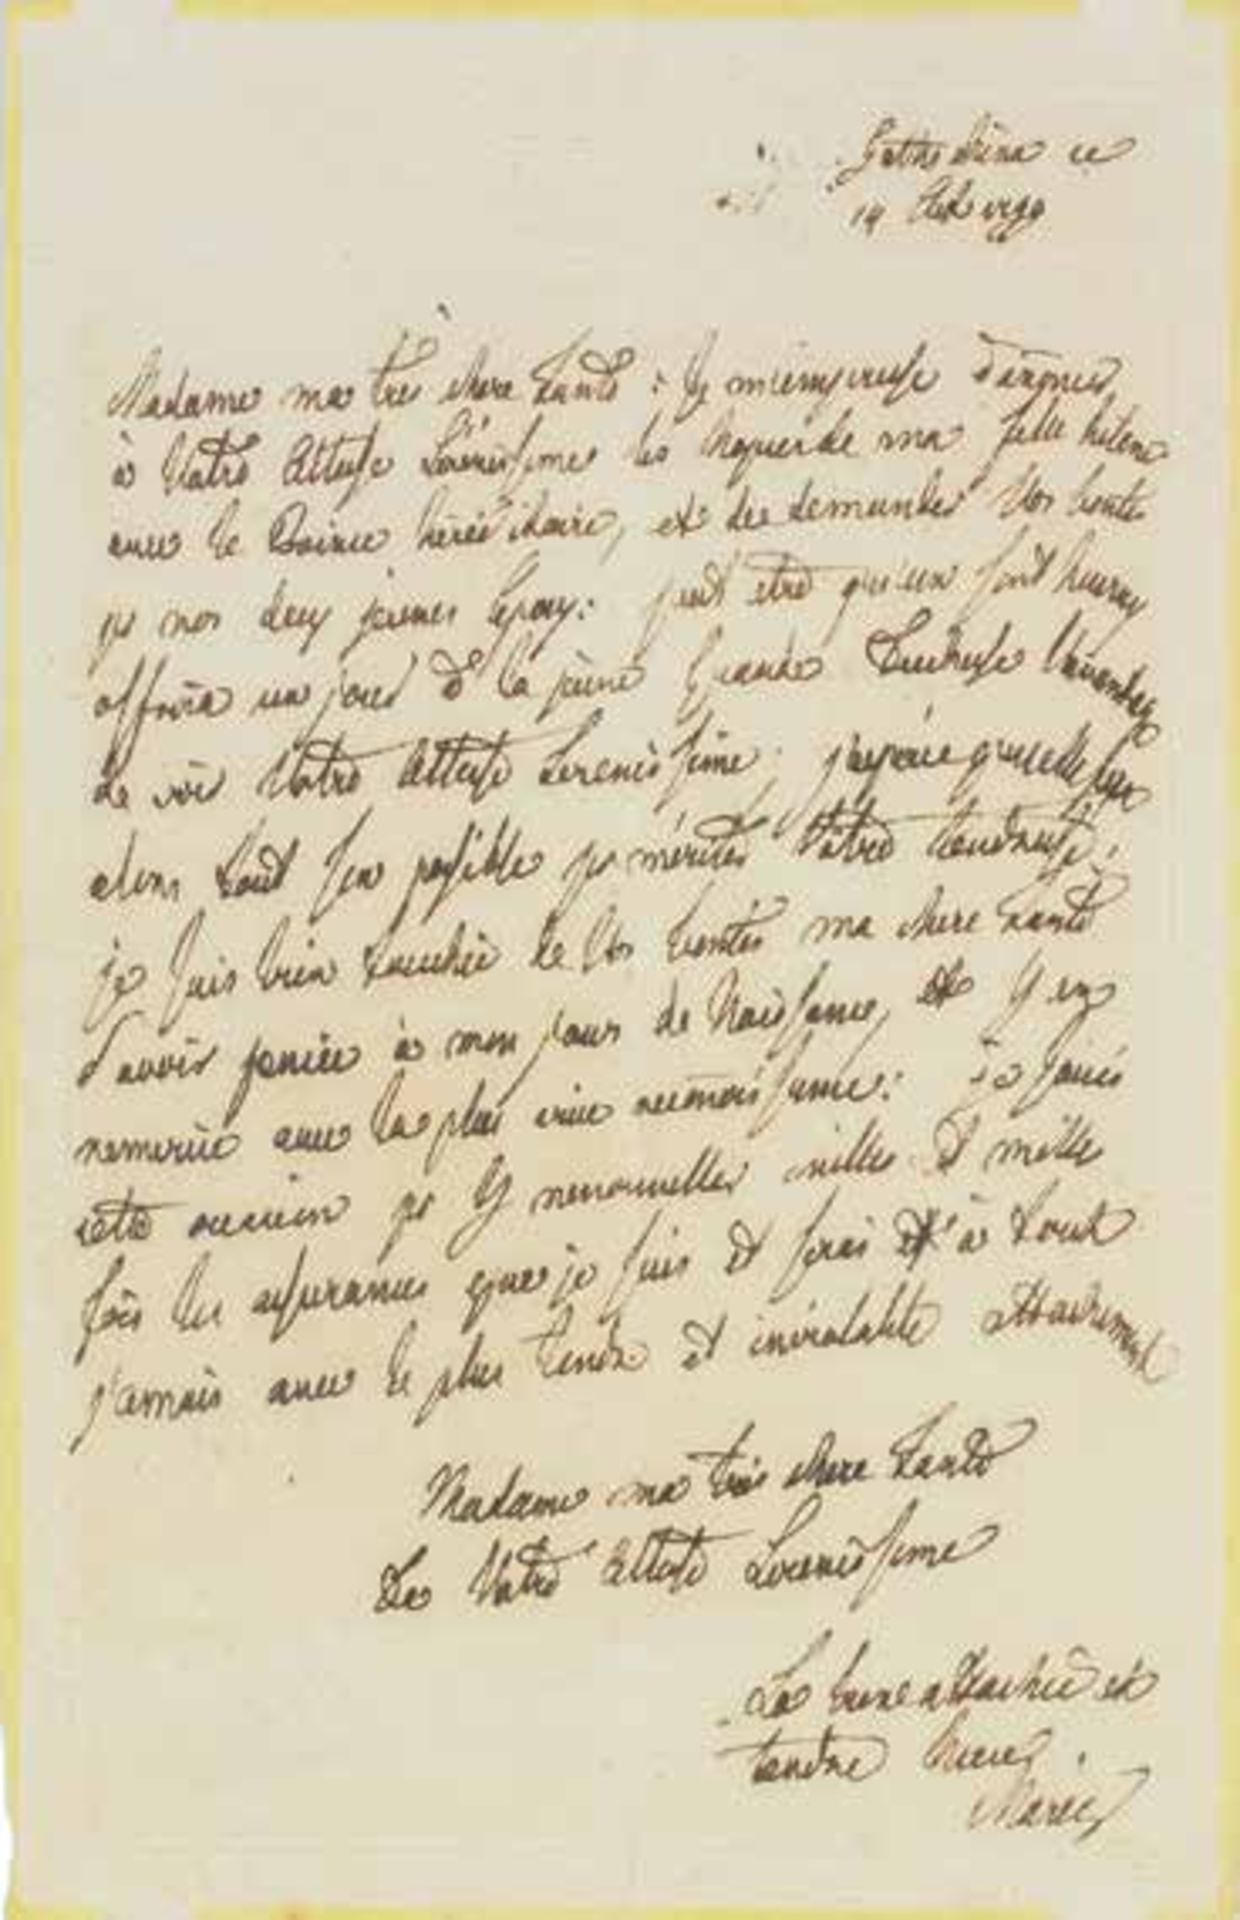 Gatschina ce
14 Oct 1799
Madame ma très chere Tante : Je m'empresse d'anoncer
à Votre Altesse Serenissime les de ma fille helene
avec le Prince héréditaire, et de demander Vos bontés
pr nos deux jeunes Epoux: peut etre qu'un sort heureux
offrira un jour à la jeune Grande Duchesse
de voir Votre Altesse Serenissime, j'espère qu'elle fera
alors tout son possible pr mériter Votre tendresse;
je suis bien touchée de Vos bontés ma chere Tante
d'avoir pensée à mon jour de Naissance, et Vs en
remercie avec la plus vive reconnoissance: Je saisis
cette occasion pr Vs renouveller mille et mille
fois les assurances que je suis et serai à tout
jamais avec le plus tendre et inviolable attachement
Madame ma très chere Tante
De Votre Altesse Serenissime
La bien attachée et
tendre Niece
Marie